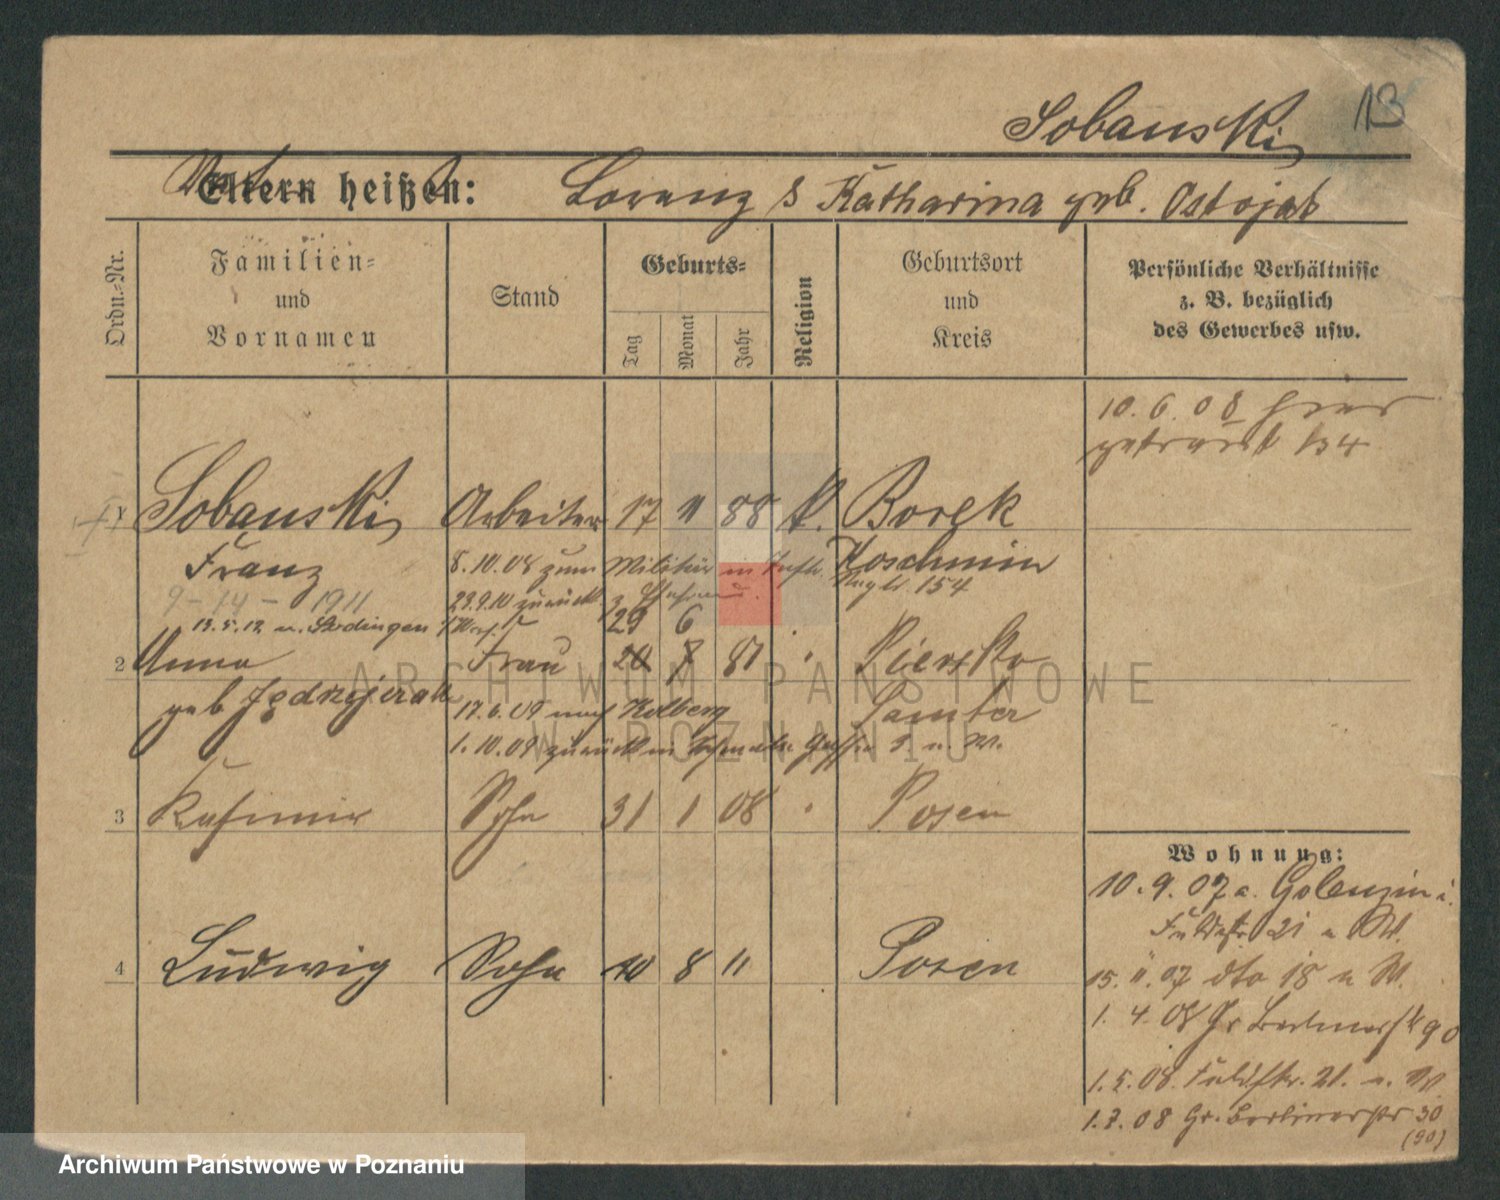 Sobanski
13
Eltern heißen: Lorenz & Katharina geb. Ostojak
Ordn.-Nr.
Familien-
und
Vornamen
Stand
Geburts-
Tag
Monat
Jahr
Religion
Geburtsort
und
Kreis
Persönliche Verhältnisse
z. B. bezüglich
des Gewerbes usw.
10. 6. 08 hier
getraut 154
1 Sobanski Arbeiter 17 11 88 k. Borek
Franz Koschmin
8. 10. 08 zum Militär in Inftr. Regt. 154
9 - 14 - 1911
23.9.10 zurück
13.5.12 n.
29 6
2 Anna Frau 20 8 87 " Piersko
geb Jędrzejczak Samter
17. 6. 09 nach Kolberg
1. 10. 09 zurück
3 Kasimir Sohn 31 1 08 " Posen
4 Ludwig Sohn 10 8 11 Posen
Wohnung:
10. 9. 07 a. Golenzin i.
Feldstr 21 n W.
15. 11. 07 dto 18 n W.
1. 4. 08 Gr Berlinerstr 90
1. 5. 08. Feldstr. 21. n. W
1. 7. 08 Gr. Berlinerstr 30
(90)
ARCHIWUM PAŃSTWOWE
W POZNANIU
Archiwum Państwowe w Poznaniu